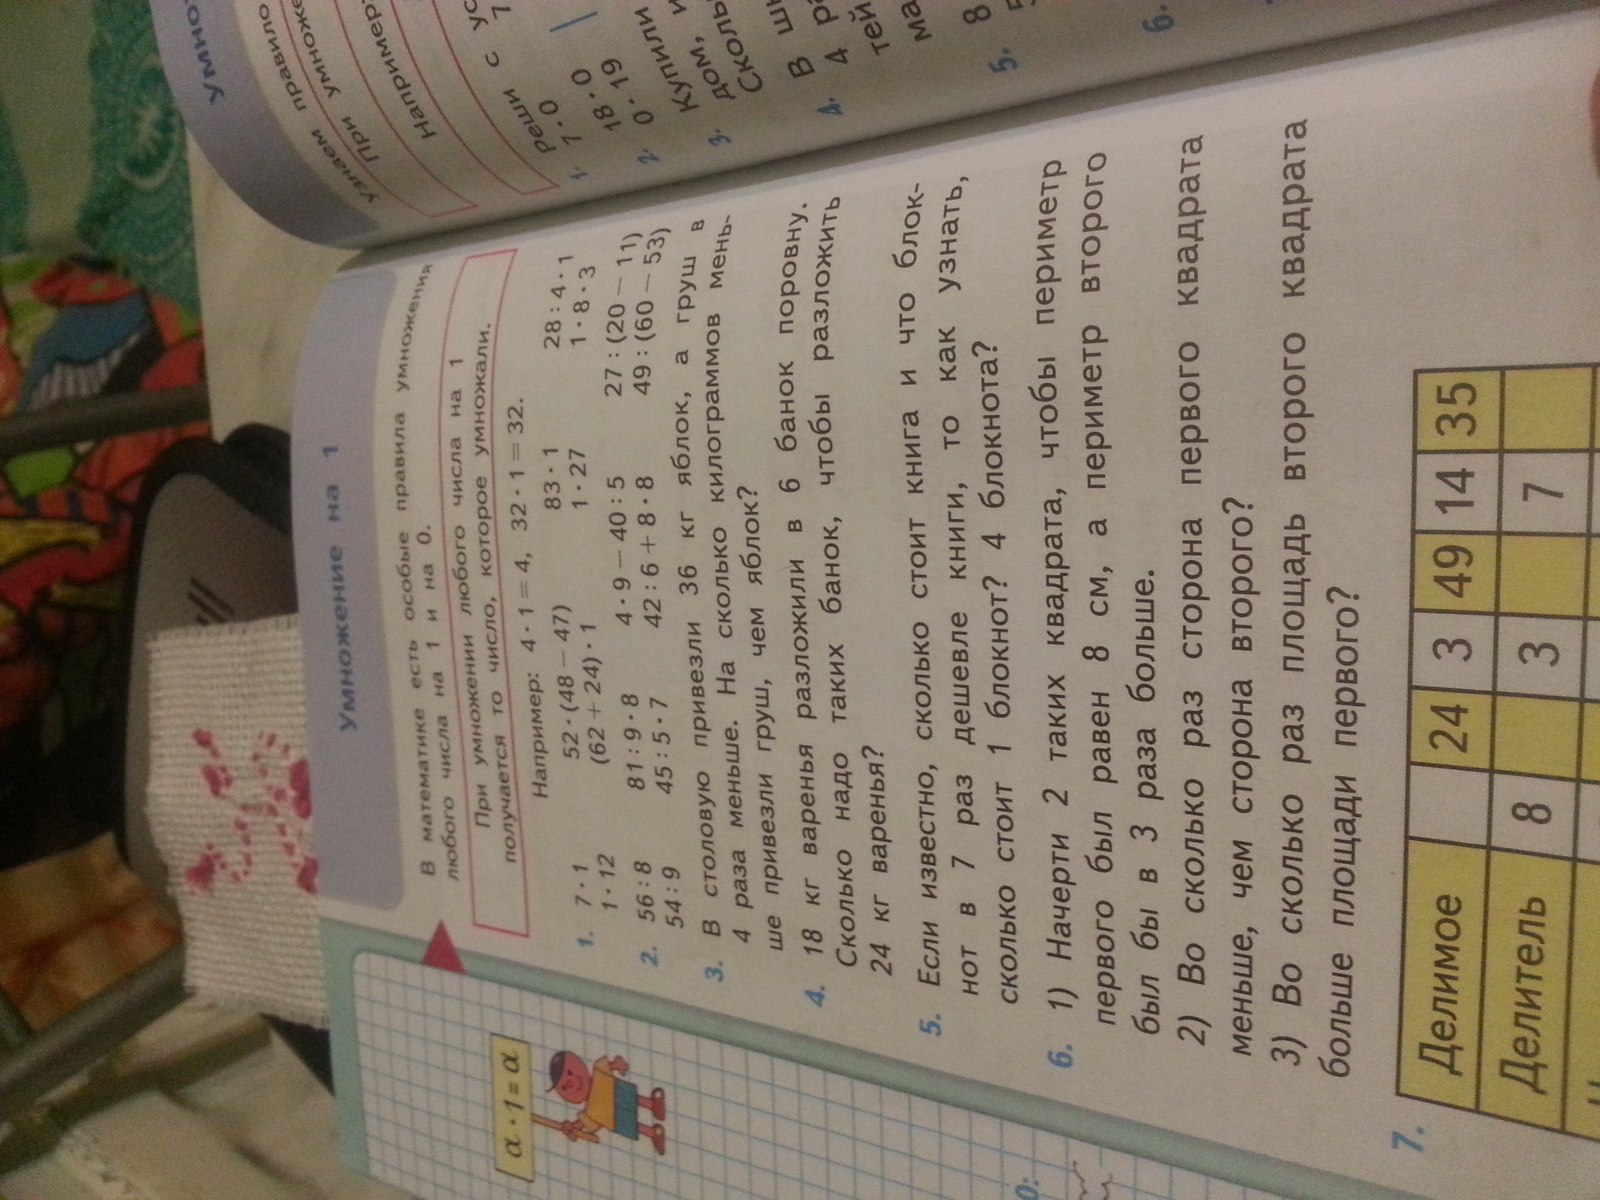 Умножение на 1
В математике есть особые правила умножения
любого числа на 1 и на 0.
При умножении любого числа на 1
получается то число, которое умножали.
Например: 4 · 1 = 4, 32 · 1 = 32.
1. 7 · 1 52 · (48 − 47) 83 · 1 28 : 4 · 1
1 · 12 (62 + 24) · 1 1 · 27 1 · 8 · 3
2. 56 : 8 81 : 9 · 8 4 · 9 − 40 : 5 27 : (20 − 11)
54 : 9 45 : 5 · 7 42 : 6 + 8 · 8 49 : (60 − 53)
3. В столовую привезли 36 кг яблок, а груш в
4 раза меньше. На сколько килограммов мень-
ше привезли груш, чем яблок?
4. 18 кг варенья разложили в 6 банок поровну.
Сколько надо таких банок, чтобы разложить
24 кг варенья?
5. Если известно, сколько стоит книга и что блок-
нот в 7 раз дешевле книги, то как узнать,
сколько стоит 1 блокнот? 4 блокнота?
6. 1) Начерти 2 таких квадрата, чтобы периметр
первого был равен 8 см, а периметр второго
был бы в 3 раза больше.
2) Во сколько раз сторона первого квадрата
меньше, чем сторона второго?
3) Во сколько раз площадь второго квадрата
больше площади первого?
7. Делимое 24 3 49 14 35
Делитель 8 3 7
a · 1 = a
узнаем правило
При умноже
Например
Реши с ус
1. 7 · 0
18 · 0
2. 0 · 19
3. Купили
дом, и
Сколь
4. В
4
тей
ма
5. 8
6.